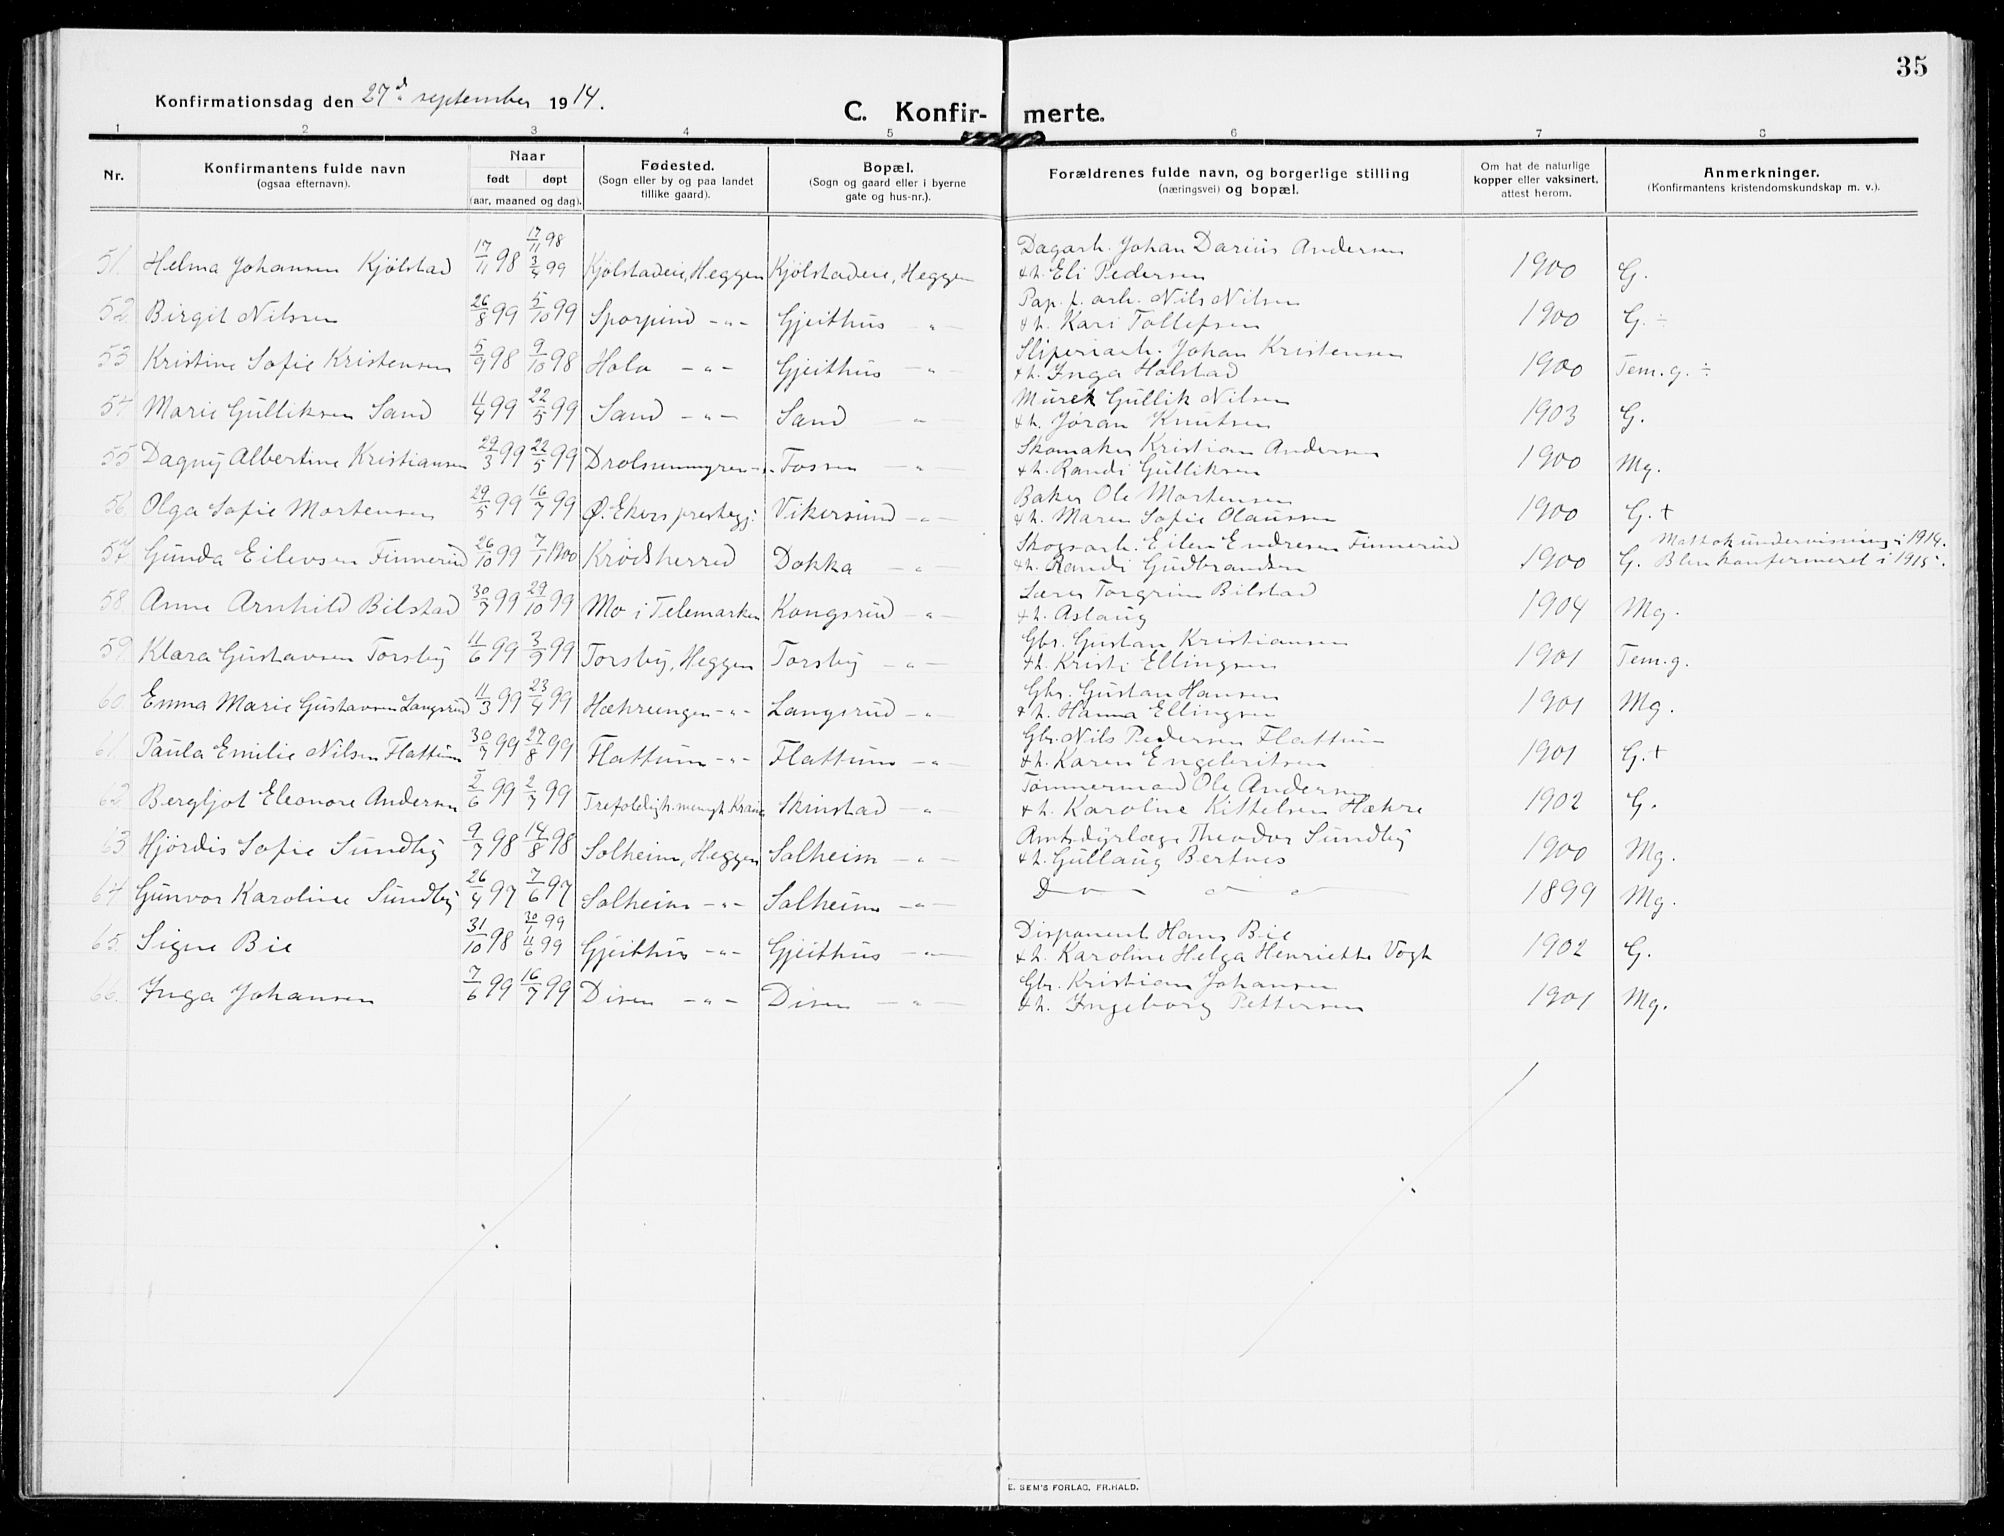 35
Konfirmationsdag den 27d september 1914.
C. Konfir- merte.
1 2 3 4 5 6 7 8
Nr.
Konfirmantens fulde navn
(ogsaa efternavn).
Naar
født døpt
(aar, maaned og dag).
Fødested.
(Sogn eller by og paa landet
tillike gaard).
Bopæl.
(Sogn og gaard eller i byerne
gate og hus-nr.).
Forældrenes fulde navn, og borgerlige stilling
(næringsvei) og bopæl.
Om hat de naturlige
kopper eller vaksinert,
attest herom.
Anmerkninger.
(Konfirmantens kristendomskundskap m. v.).
17/11 98 Dagarb. Johan Darius Andersen
51. Helma Johansen Kjølstad 17/11 98 3/4 99 Kjølstadeie, Heggen Kjølstadeie, Heggen & h. Eli Pedersen 1900 G.
Pap. f. arb. Nils Nilsen
52. Birgit Nilsen 26/8 99 5/10 99 Sporpind -"- Gjeithus -"- & h. Kari Tollefsen 1900 G. ÷
Sliperiarb. Johan Kristensen
53 Kristine Sofie Kristensen 5/9 98 9/10 98 Holo -"- Gjeithus -"- & h. Inga Holstad 1900 Tem. g. ÷
Murer Gullik Nilsen
54. Marie Gulliksen Sand 11/4 99 22/5 99 Sand -"- Sand -"- & h. Jøran Knutsen 1903 G.
Skomaker Kristian Andersen
55 Dagny Albertine Kristiansen 29/3 99 22/5 99 Drolsummyren -"- Fossen -"- & h. Randi Gulliksen 1900 Mg.
Baker Ole Mortensen
56. Olga Sofie Mortensen 29/5 99 16/7 99 Ø. Ekers prestegj. Vikersund -"- & h. Maren Sofie Olaussen 1900 G. +
Skogsarb. Eilev Endresen Finnerud Mottok undervisning i 1914.
57. Gunda Eilevsen Finnerud 26/10 99 7/1 1900 Krødsherred Dokka -"- & h. Randi Gudbrandsen 1900 G. Blev konfirmeret i 1915.
Lærer Torgrim Bilstad
58. Anne Arnhild Bilstad 30/7 99 29/10 99 Mo i Telemarken Kongsrud -"- & h. Aslaug 1904 Mg.
Gbr. Gustav Kristiansen
59. Klara Gustavsen Torsby 11/6 99 3/9 99 Torsby, Heggen Torsby -"- & h. Kristi Ellingsen 1901 Tem. g.
Gbr. Gustav Hansen
60. Emma Marie Gustavsen Langsrud 11/3 99 23/4 99 Hæhrungen -"- Langsrud -"- & h. Hanna Ellingsen 1901 Mg.
Gbr. Nils Pedersen Flattum
61. Paula Emilie Nilsen Flattum 30/7 99 27/8 99 Flattum -"- Flattum -"- & h. Karen Engebritsen 1901 G. +
Tømmermand Ole Andersen
62. Bergljot Eleonore Andersen 2/6 99 2/7 99 Trefoldigh. mengh. Kr.ania Skinstad -"- & h. Karoline Kittelsen Hæhre 1902 G.
Amtsdyrlæge Theodor Sundby
63 Hjørdis Sofie Sundby 9/7 98 14/8 98 Solheim, Heggen Solheim -"- & h. Gullaug Bertnes 1900 Mg.
64. Gunvor Karoline Sundby 26/4 97 7/6 97 Solheim -"- Solheim -"- Do 1899 Mg.
30/1 99 Disponent Hans Bie
65. Signe Bie 31/10 98 4/6 99 Gjeithus -"- Gjeithus -"- & h. Karoline Helga Henriette Vogt 1902 G.
Gbr. Kristian Johansen
66. Inga Johansen 7/6 99 16/7 99 Disen -"- Disen -"- & h. Ingeborg Pettersen 1901 Mg.
E. SEM'S FORLAG, FR.HALD.